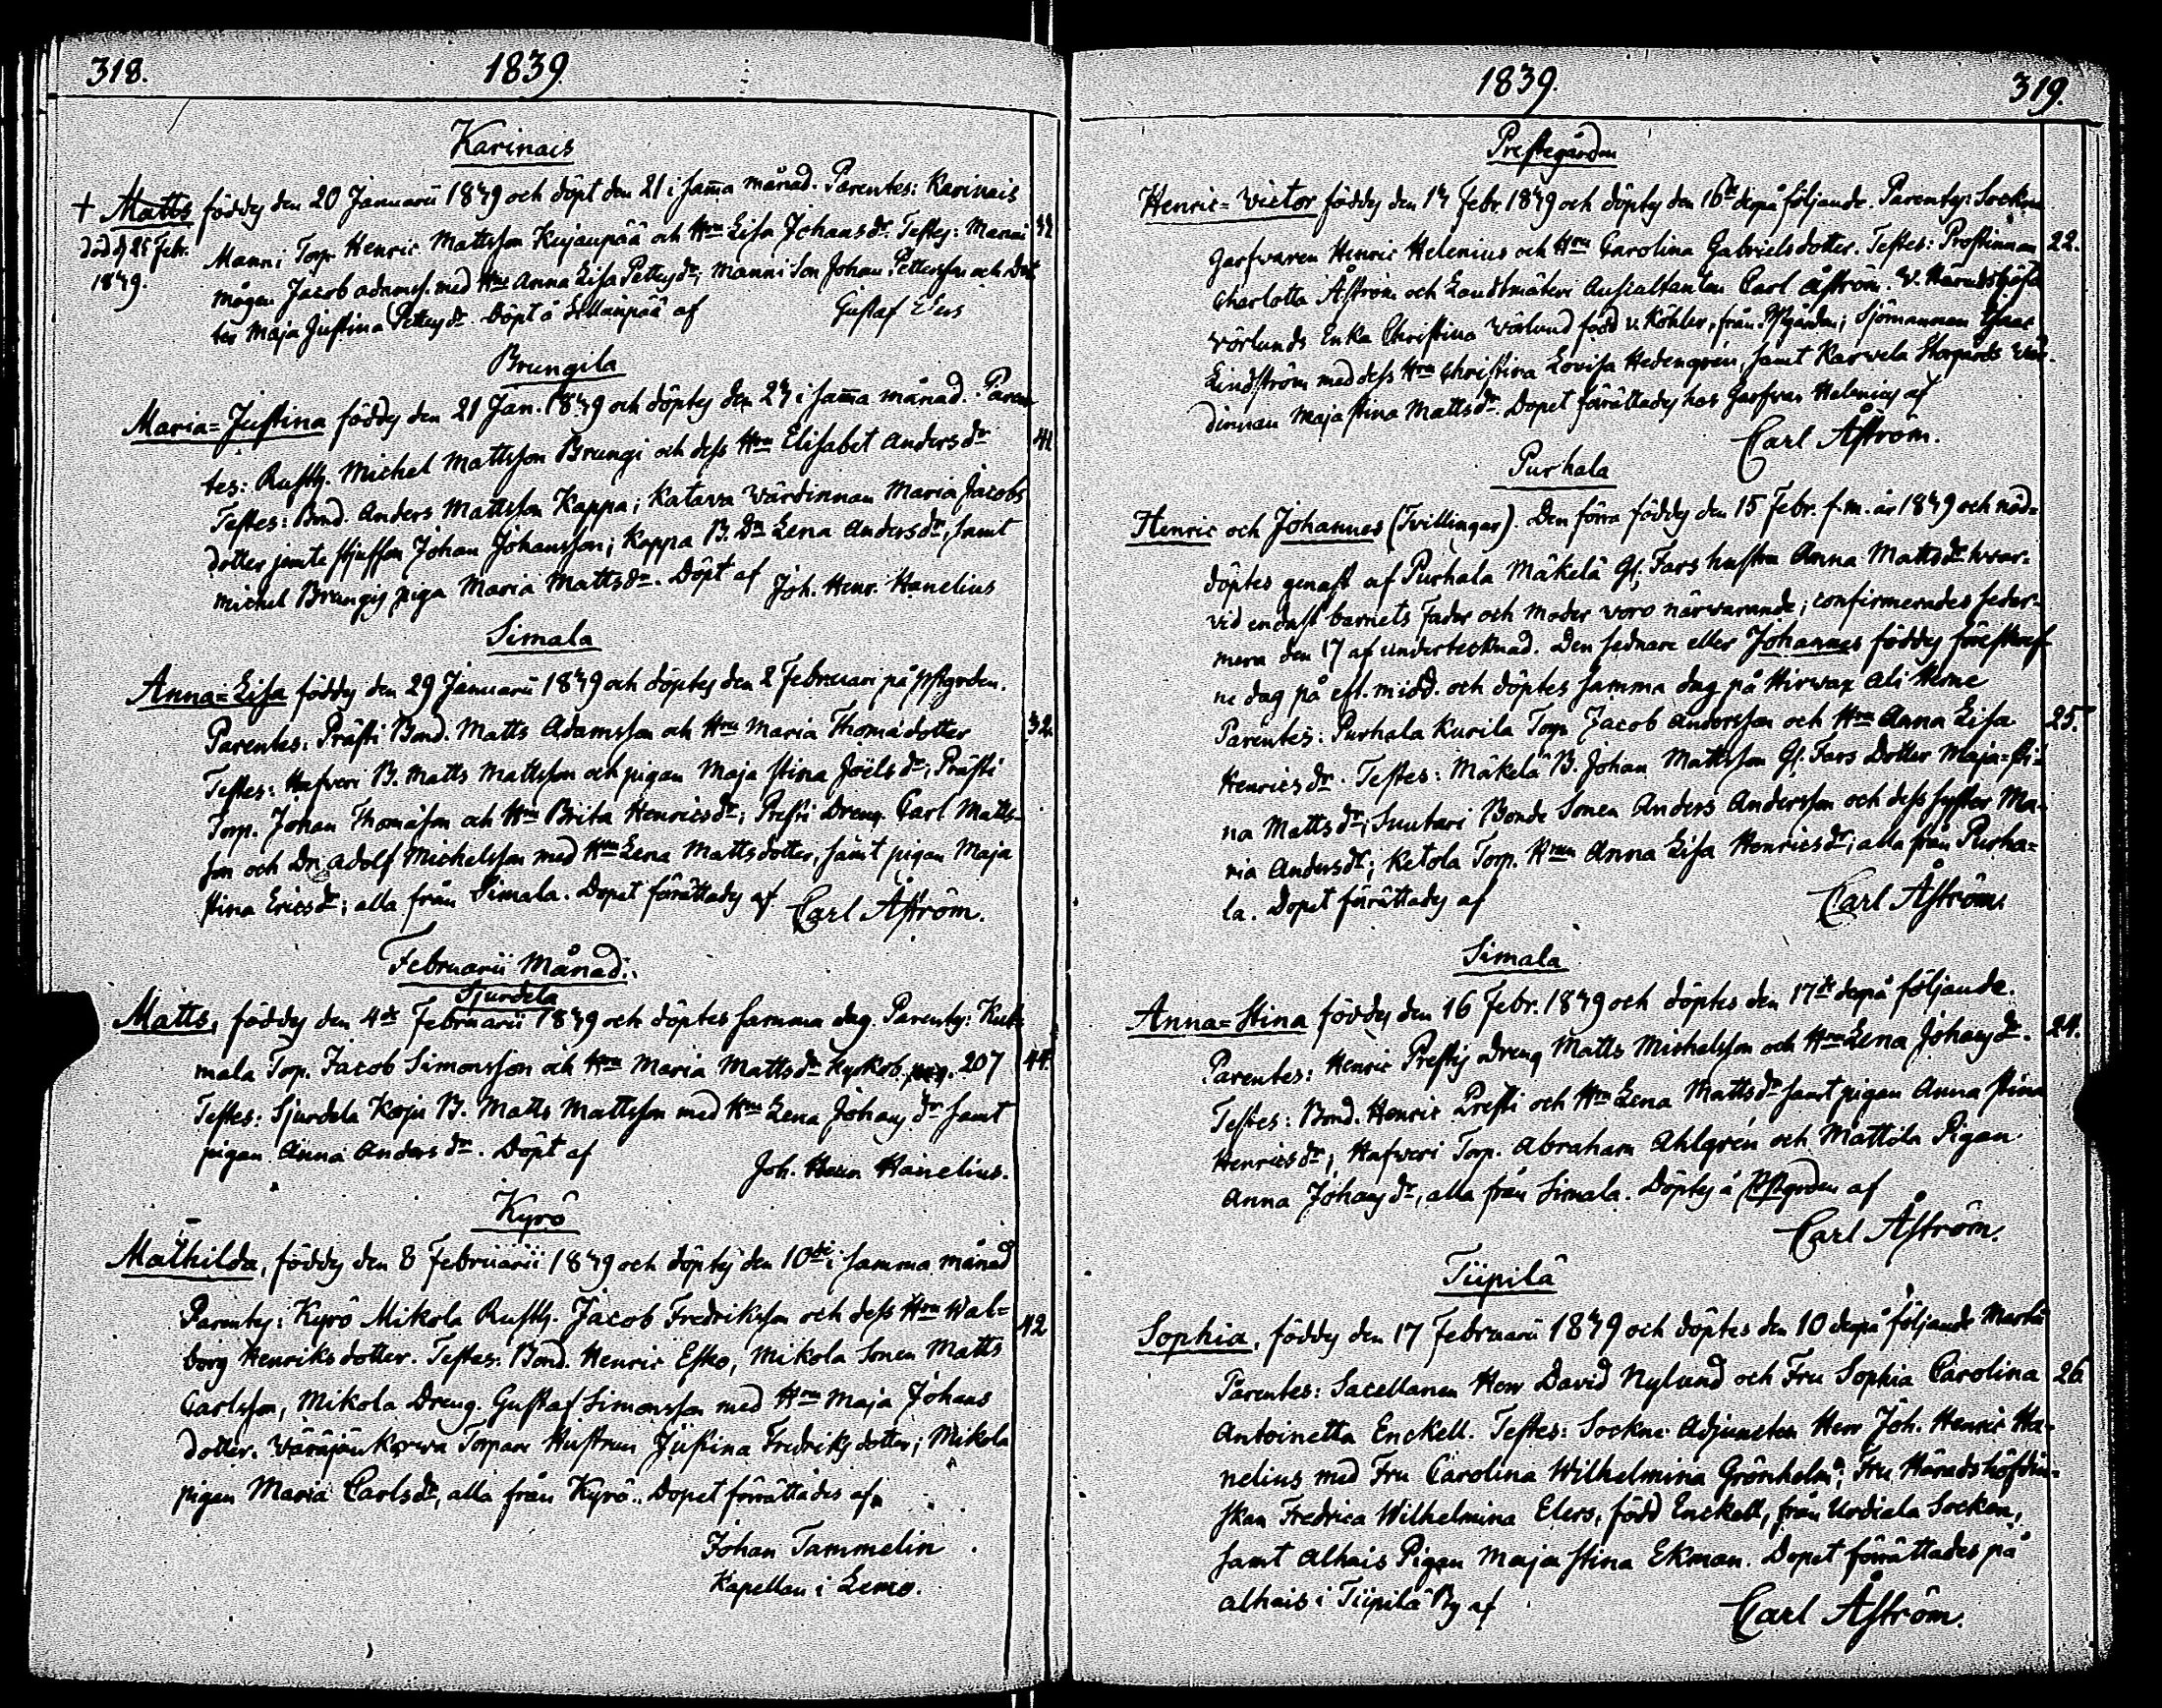 318.
1839.
Karinais
+ Matts föddes den 20 Januarii 1839 och döpt den 21 i samma månad. Parentes: Karinais
död d. 25 Febr.
1839.
Manni Torp. Henric Mattsson Kujanpää och Hru Lisa Johansdr. Testes: Manni
mågen Jacob Adamss. med Hru Anna Lisa Pettersdr; Manni Son Johan Pettersson och Dot
ter Maja Justina Pettersdr. Döpt å af
Gustaf Elers
Brungila
Maria=Justina föddes den 21 Jan. 1839 och döptes den 27 i samma månad. Paren
tes: Rusth. Michel Mattsson Brungi och dess Hru Elisabet Andersdr
41
Testes: Bond. Anders Mattsson Kappa; Katava Värdinnan Maria Jacobs
dotter jemte Johan Johansson; Kappa B. Dr Lena Andersdr, samt
Michel Brungis piga Maria Mattsdr. Döpt af Joh. Henr. Hanelius
Simala
Anna=Lisa föddes den 29 Januarii 1839 och döptes den 2 Februari på Pstgrden.
Parentes: Prästi Bond. Matts Adamsson och Hru Maria Thomædotter
32.
Testes: Hafveri B. Matts Mattsson och pigan Maja Stina Joëlsdr; Prästi
Torp. Johan Thomasson och Hru Brita Henricsdr; Presti Dreng. Carl Matts-
son och Dr. Adolf Michelsson med Hru Lena Mattsdotter, samt pigan Maja
Stina Ericsdr; alla från Simala. Dopet förättades af
Carl Åström.
Februarii Månad.
Sjurdela
Matts, föddes den 4de Februarii 1839 och döptes samma dag. Parentes:
mala Torp. Jacob Simonsson och Hru Maria Mattsdr Kyrkob. 207
44.
Testes: Sjurdela B. Matts Mattsson med Hru Lena Johansdr samt
pigan Anna Andersdr. Döpt af
Joh. Henr. Hanelius.
Kyrö
Mathilda, föddes den 8 Februarii 1839 och döptes den 10de i samma månad
Parentes: Kyrö Mikola Rusth. Jacob Fredriksson och dess Hru Wal=
42
borg Henriksdotter. Testes: Bond. Henric Esko, Mikola Sonen Matts
Carlsson, Mikola Dreng. Gustaf Simonsson med Hru Maja Johans
dotter. Torpare Hustrun Justina Fredriksdotter; Mikola
pigan Maria Carlsdr, alla från Kyrö. Dopet förrättades af
Johan Tammelin
Kapellan i Lemo.
1839.
319.
Prestegården
Henric=Victor föddes den 14 Febr. 1839 och döptes den 16de derpå följande. Parentes: Socken
Garfvaren Henric Helenius och Hru Carolina Gabrielsdotter. Testes: Prostinnan
22.
Charlotta Åström och Landtmäteri Auscultanten Carl Åström. V. Häradshöfd.
Wörlunds Enka Christina Wörlund född v. Köhler, från Pstgården; Sjömannen Isaac
Lindström med dess Hru Christina Lovisa Hedengrén, samt Karwela Wär-
dinnan Maja Stina Mattsdr. Dopet förättades hos Garfvar Helenius af
Carl Åström.
Purhala
Henric och Johannes (Tvillingar). Den förra föddes den 15 Febr. f.m. år 1839 och nöd=
döptes genast af Purhala Mäkelä Gl. Fars hustru Anna Mattsdr hvar-
vid endast barnets Fader och Moder voro närvarande; confirmerades seder-
mera den 17 af undertecknad. Den sednare eller Johannes föddes förestnäf
ne dag på eft. midd. och döptes samma dag på Hirwax Ali Heme
Parentes: Purhala Kurila Torp. Jacob Andersson och Hru Anna Lisa
25.
Henricsdr. Testes: Mäkelä B. Johan Mattsson Gl. Fars Dotter Maja=sti=
na Mattsdr; Suutari Bonde Sonen Anders Andersson och dess syster Ma-
ria Andersdr; Ketola Torp. Hrun Anna Lisa Henricsdr; alla från Purha=
la. Dopet förättades af
Carl Åström.
Simala
Anna=Stina föddes den 16 Febr. 1839 och döptes den 17de derpå följande.
24.
Parentes: Henric Prestis Dreng Matts Michelsson och Hru Lena Johansdr.
Testes: Bond. Henric Presti och Hru Lena Mattsdr samt pigan Anna Stina
Henricsdr; Hafveri Torp. Abraham Ahlgrén och Mattila Pigan
Anna Johansdr, alla från Simala. Döptes å Pstgrden af
Carl Åström.
Tiipilä
Sophia, föddes den 17 Februarii 1839 och döptes den 10 derpå följande Martii
Parentes: Sacellanen Herr David Nylund och Fru Sophia Carolina
26
Antoinetta Enckell. Testes: Sockne Adjuncten Herr Joh. Henric Ha-
nelius med Fru Carolina Wilhelmina Grönholm; Fru Häradshöfdin-
skan Fredrica Wilhelmina Elers, född Enckell, från Urdiala Socken,
samt Alhais Pigan Maja Stina Ekman. Dopet förrättades på
Alhais i Tiipilä By af
Carl Åström.